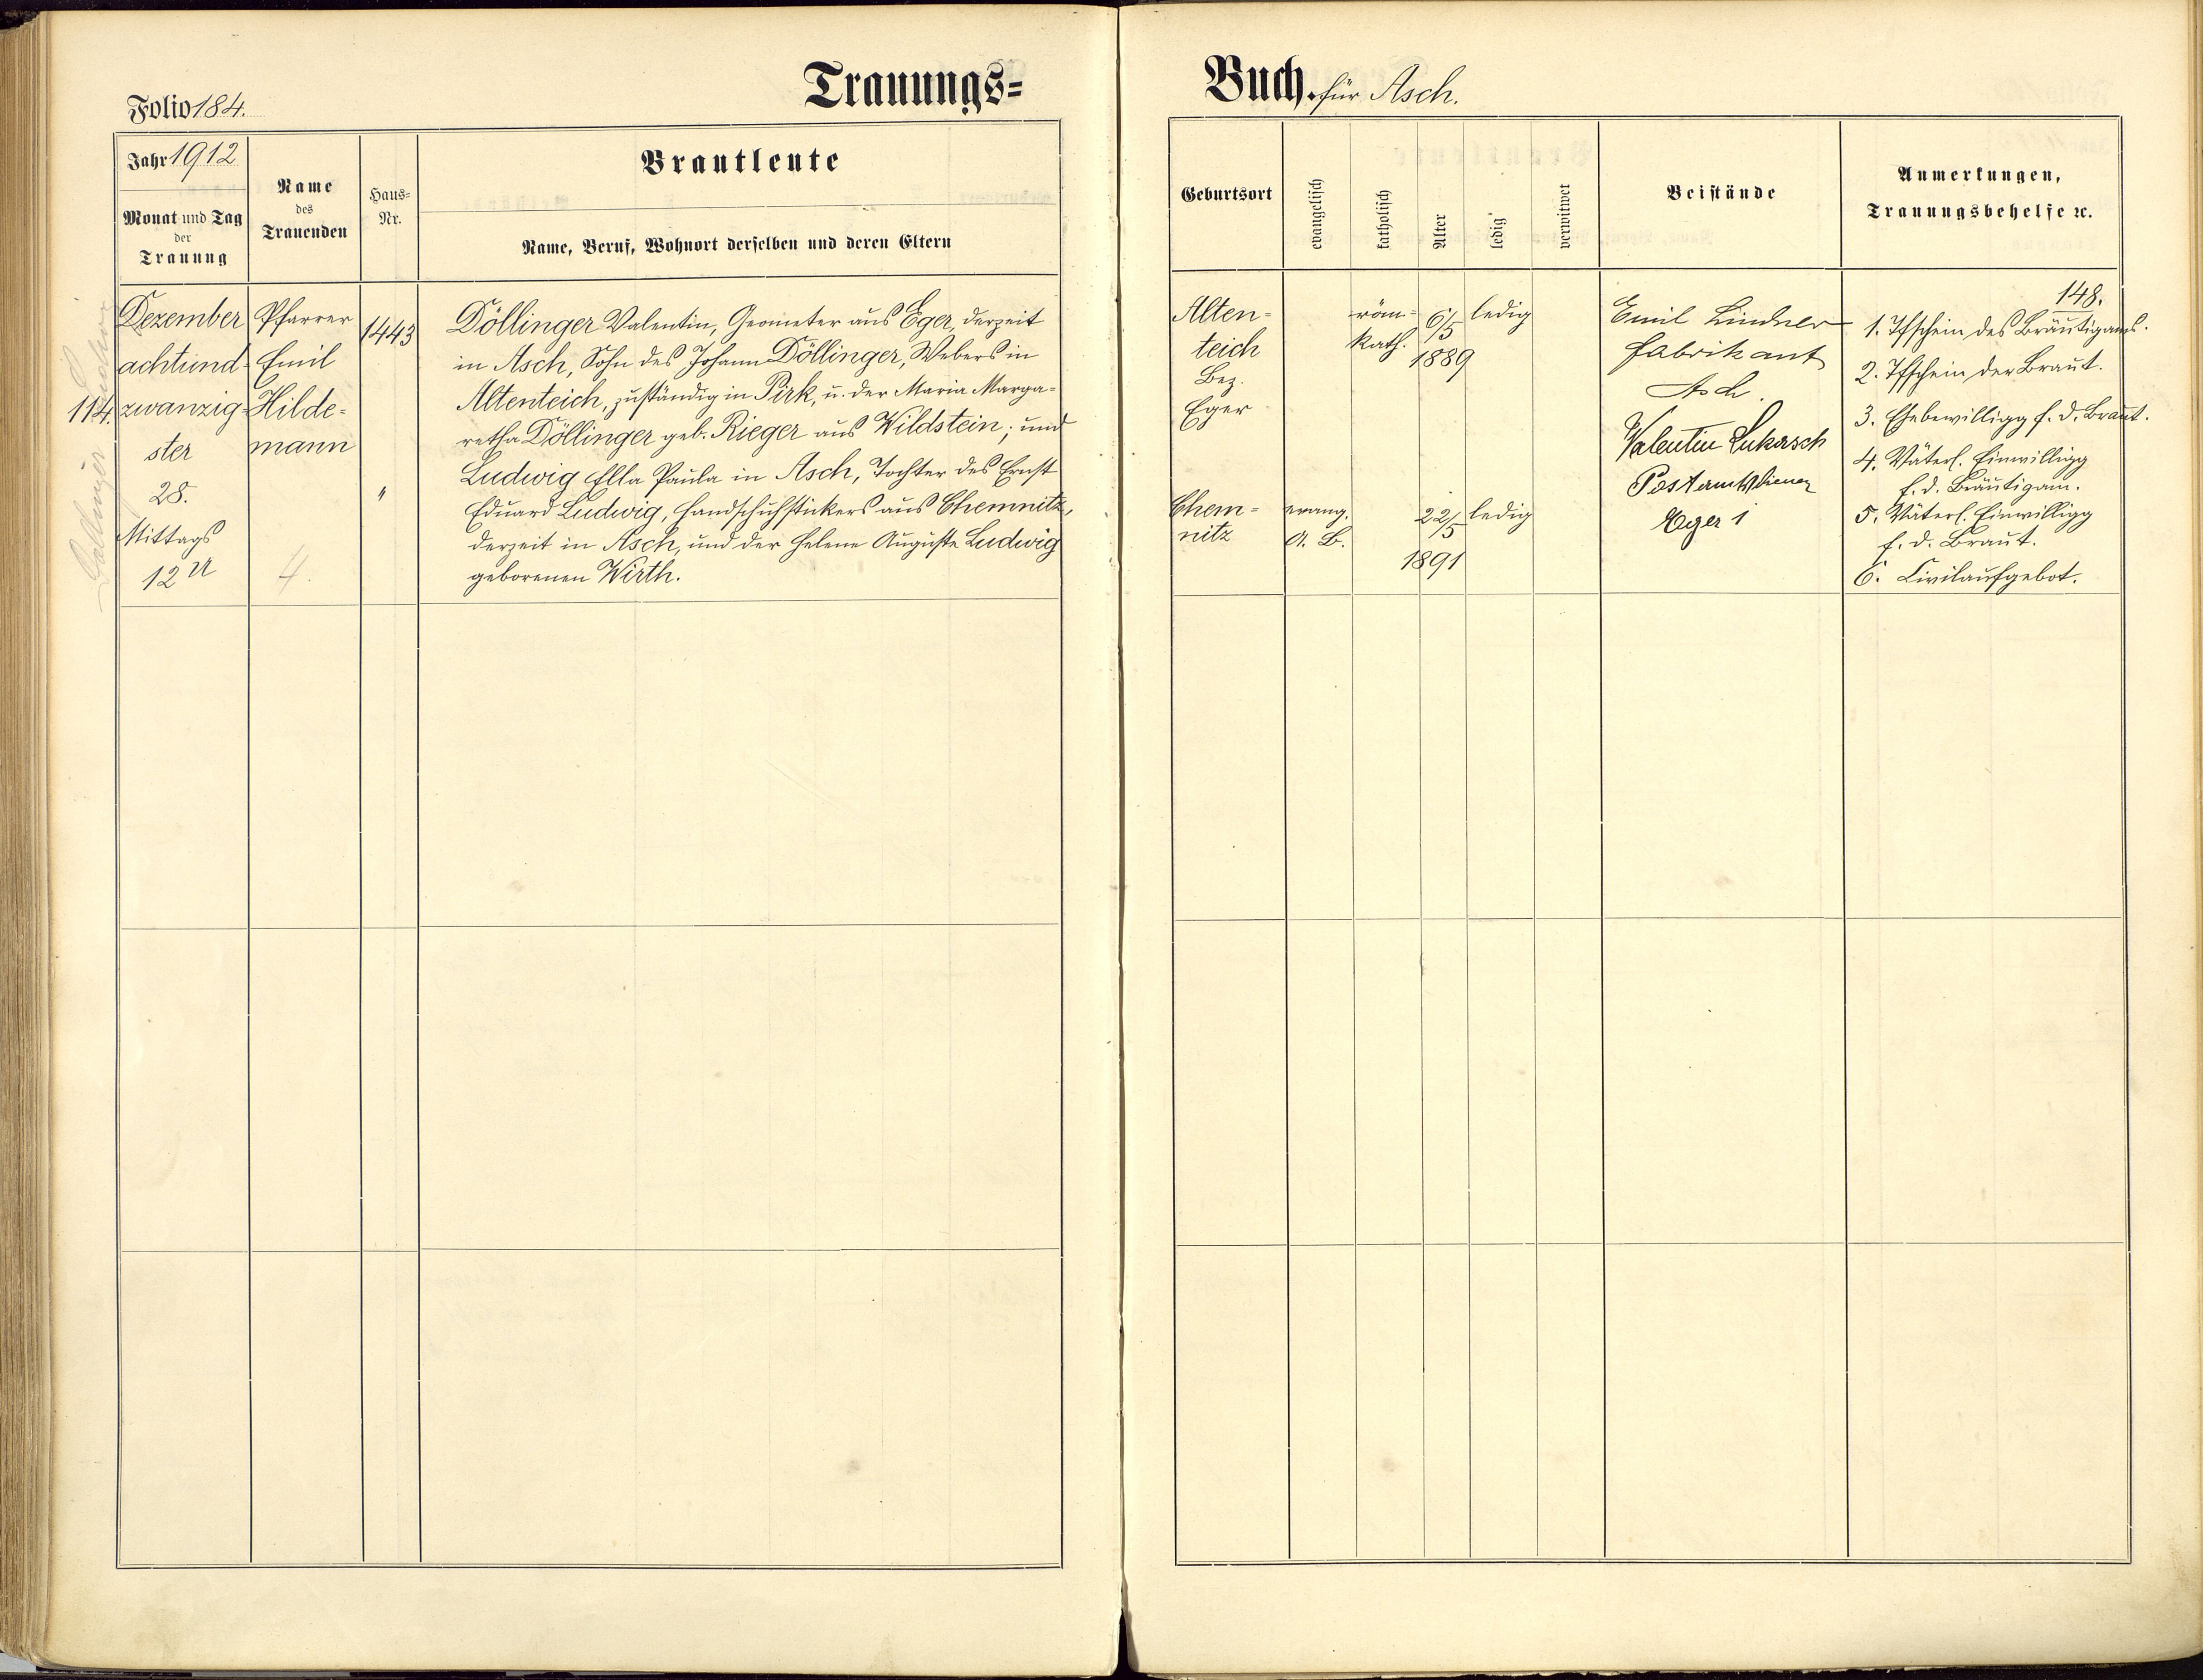 Trauungs=
Buch. für Asch.
Folio 184.
Jahr 1912
Monat und Tag
der
Trauung
Name
des
Trauenden
Haus=
Nr.
Brautleute
Name, Beruf, Wohnort derselben und deren Eltern
Geburtsort
evangelisch
katholisch
Alter
ledig
verwitwet
Beistände
Anmerkungen,
Trauungsbehelfe ꝛc.
114.
Dezember
achtund-
zwanzig-
ster
28.
Mittags
12 U
Pfarrer
Emil
Hilde-
mann
4.
1443
"
Döllinger Valentin, Geometer aus Eger, derzeit
in Asch, Sohn des Johann Döllinger, Webers in
Altenteich, zuständig in Pirk, u. der Maria Marga-
retha Döllinger geb. Rieger aus Wildstein; und
Ludwig Ella Paula in Asch, Tochter des Ernst
Eduard Ludwig, Handschuhstickers aus Chemnitz,
derzeit in Asch, und der Helene Auguste Ludwig
geborenen Wirth.
Alten-
teich
Bez.
Eger
röm-
kath.
6/5
1889
ledig
Chem-
nitz
evang.
A. B.
22/5
1891
ledig
Emil Lindner
Fabrikant
Asch.
Valentin Lukasch
Postamtsdiener
Eger 1
148.
1. Tfschein des Bräutigams.
2. Tfschein der Braut.
3. Ehebewilligg f. d. Braut.
4. Väterl. Einwilligg
f. d. Bräutigam.
5. Väterl. Einwilligg
f. d. Braut.
6. Civilaufgebot.